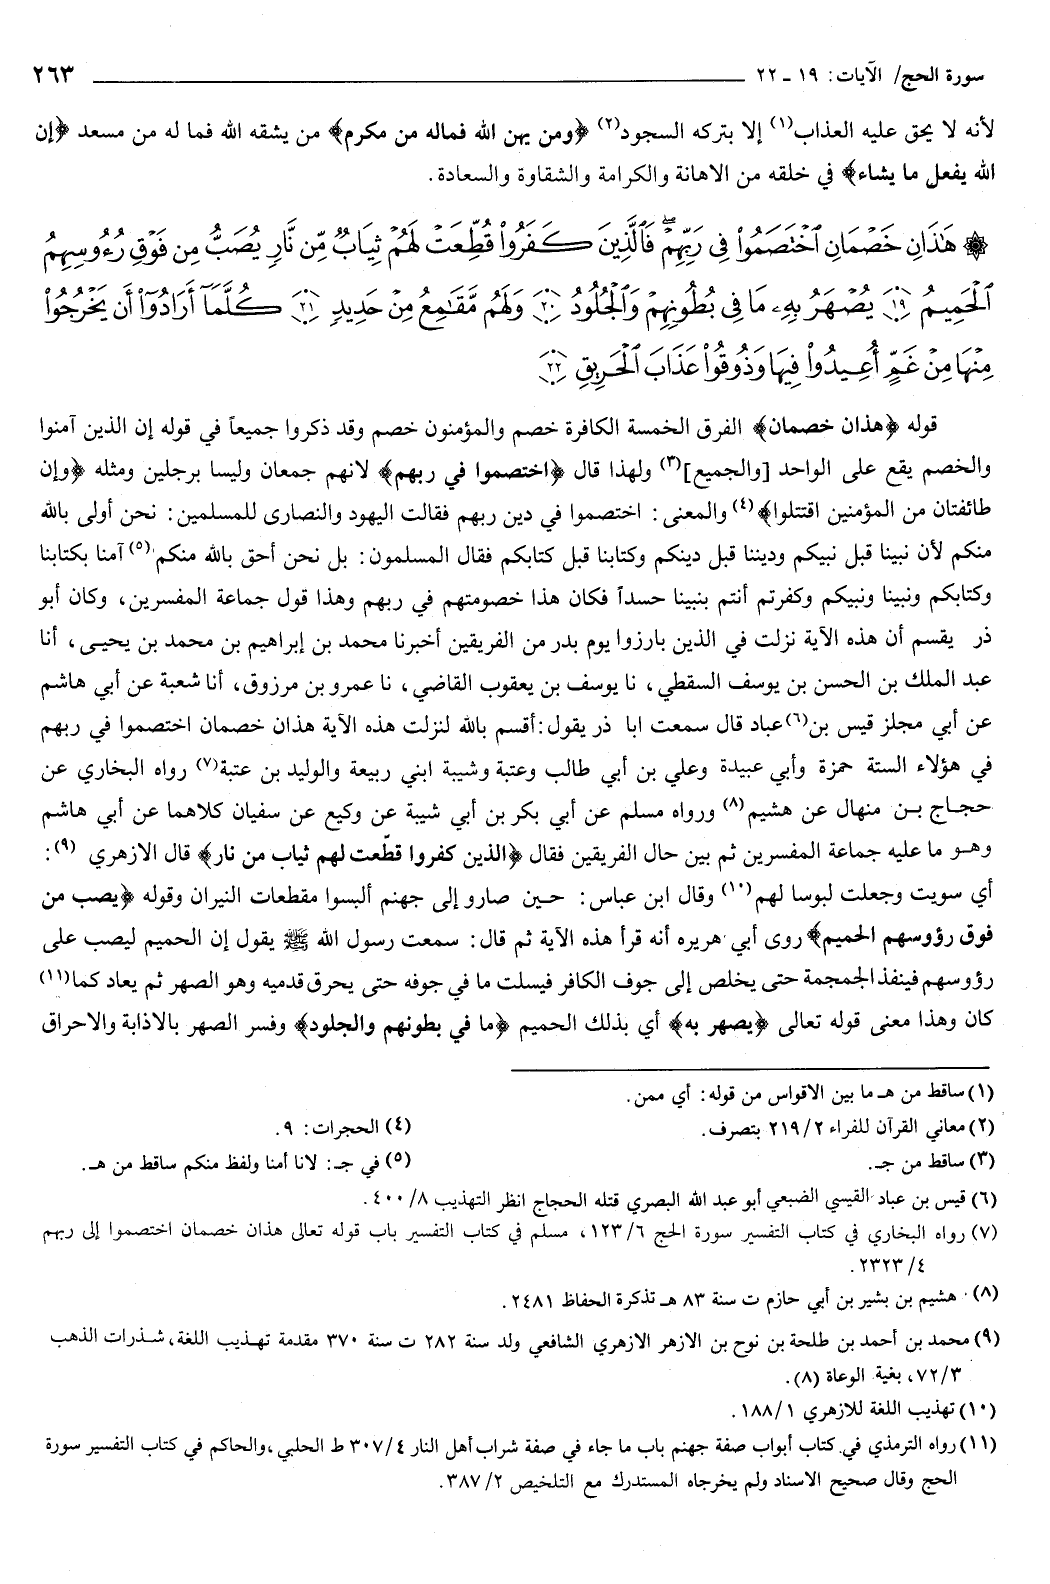 سورة الحج/ الآيات: ١٩ ـ ٢٢ ٢٦٣
لأنه لا يحق عليه العذاب(١) إلا بتركه السجود(٢) ﴿ومن يهن الله فماله من مكرم﴾ من يشقه الله فما له من مسعد ﴿إن
الله يفعل ما يشاء﴾ في خلقه من الاهانة والكرامة والشقاوة والسعادة.
۞ هَٰذَانِ خَصْمَانِ ٱخْتَصَمُوا۟ فِى رَبِّهِمْ ۖ فَٱلَّذِينَ كَفَرُوا۟ قُطِّعَتْ لَهُمْ ثِيَابٌ مِّن نَّارٍ يُصَبُّ مِن فَوْقِ رُءُوسِهِمُ
ٱلْحَمِيمُ ١٩ يُصْهَرُ بِهِۦ مَا فِى بُطُونِهِمْ وَٱلْجُلُودُ ٢٠ وَلَهُم مَّقَٰمِعُ مِنْ حَدِيدٍ ٢١ كُلَّمَآ أَرَادُوٓا۟ أَن يَخْرُجُوا۟
مِنْهَا مِنْ غَمٍّ أُعِيدُوا۟ فِيهَا وَذُوقُوا۟ عَذَابَ ٱلْحَرِيقِ ٢٢
قوله ﴿هذان خصمان﴾ الفرق الخمسة الكافرة خصم والمؤمنون خصم وقد ذكروا جميعاً في قوله إن الذين آمنوا
والخصم يقع على الواحد [والجميع](٣) ولهذا قال ﴿اختصموا في ربهم﴾ لانهم جمعان وليسا برجلين ومثله ﴿وإن
طائفتان من المؤمنين اقتتلوا﴾(٤) والمعنى: اختصموا في دين ربهم فقالت اليهود والنصارى للمسلمين: نحن أولى بالله
منكم لأن نبينا قبل نبيكم وديننا قبل دينكم وكتابنا قبل كتابكم فقال المسلمون: بل نحن أحق بالله منكم(٥) آمنا بكتابنا
وكتابكم ونبينا ونبيكم وكفرتم أنتم بنبينا حسداً فكان هذا خصومتهم في ربهم وهذا قول جماعة المفسرين، وكان أبو
ذر يقسم أن هذه الآية نزلت في الذين بارزوا يوم بدر من الفريقين أخبرنا محمد بن إبراهيم بن محمد بن يحيى، أنا
عبد الملك بن الحسن بن يوسف السقطي، نا يوسف بن يعقوب القاضي، نا عمرو بن مرزوق، أنا شعبة عن أبي هاشم
عن أبي مجلز قيس بن(٦) عباد قال سمعت ابا ذر يقول: أقسم بالله لنزلت هذه الآية هذان خصمان اختصموا في ربهم
في هؤلاء الستة حمزة وأبي عبيدة وعلي بن أبي طالب وعتبة وشيبة ابني ربيعة والوليد بن عتبة(٧) رواه البخاري عن
حجاج بن منهال عن هشيم(٨) ورواه مسلم عن أبي بكر بن أبي شيبة عن وكيع عن سفيان كلاهما عن أبي هاشم
وهو ما عليه جماعة المفسرين ثم بين حال الفريقين فقال ﴿الذين كفروا قطّعت لهم ثياب من نار﴾ قال الازهري (٩):
أي سويت وجعلت لبوسا لهم(١٠) وقال ابن عباس: حين صارو إلى جهنم ألبسوا مقطعات النيران وقوله ﴿يصب من
فوق رؤوسهم الحميم﴾ روى أبي هريره أنه قرأ هذه الآية ثم قال: سمعت رسول الله ﷺ يقول إن الحميم ليصب على
رؤوسهم فينفذ الجمجمة حتى يخلص إلى جوف الكافر فيسلت ما في جوفه حتى يحرق قدميه وهو الصهر ثم يعاد كما(١١)
كان وهذا معنى قوله تعالى ﴿يصهر به﴾ أي بذلك الحميم ﴿ما في بطونهم والجلود﴾ وفسر الصهر بالاذابة والاحراق
(١) ساقط من هـ ما بين الاقواس من قوله: أي ممن.
(٢) معاني القرآن للفراء ٢/ ٢١٩ بتصرف. (٤) الحجرات: ٩.
(٣) ساقط من جـ. (٥) في جـ: لانا أمنا ولفظ منكم ساقط من هـ.
(٦) قيس بن عباد القيسي الضبعي أبو عبد الله البصري قتله الحجاج انظر التهذيب ٨/ ٤٠٠.
(٧) رواه البخاري في كتاب التفسير سورة الحج ٦/ ١٢٣، مسلم في كتاب التفسير باب قوله تعالى هذان خصمان اختصموا إلى ربهم
٤/ ٢٣٢٣.
(٨) هشيم بن بشير بن أبي حازم ت سنة ٨٣ هـ تذكرة الحفاظ ٢٤٨١.
(٩) محمد بن أحمد بن طلحة بن نوح بن الازهر الازهري الشافعي ولد سنة ٢٨٢ ت سنة ٣٧٠ مقدمة تهذيب اللغة، شذرات الذهب
٣/ ٧٢، بغية الوعاة (٨).
(١٠) تهذيب اللغة للازهري ١/ ١٨٨.
(١١) رواه الترمذي في كتاب أبواب صفة جهنم باب ما جاء في صفة شراب أهل النار ٤/ ٣٠٧ ط الحلبي، والحاكم في كتاب التفسير سورة
الحج وقال صحيح الاسناد ولم يخرجاه المستدرك مع التلخيص ٢/ ٣٨٧.